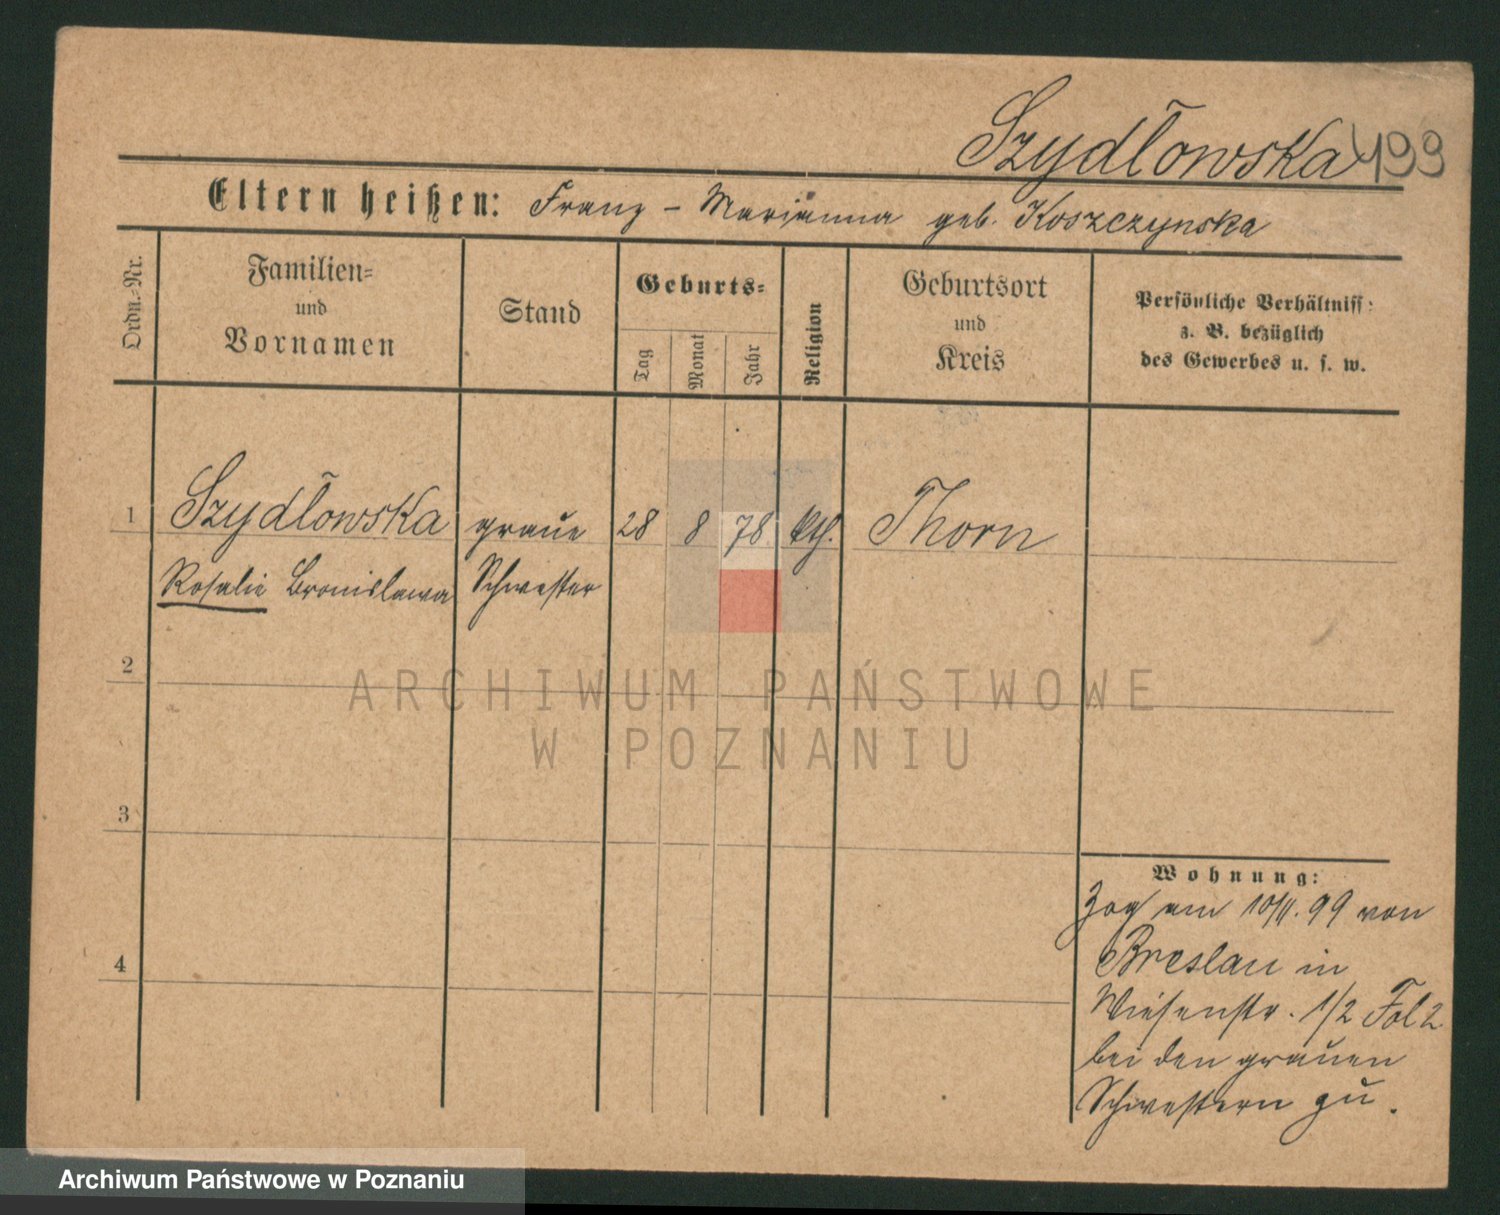 Szydłowska 499
Eltern heißen: Franz - Marianna geb. Koszczynska
Ordn.-Nr.
Familien-
und
Vornamen
Stand
Geburts-
Tag
Monat
Jahr
Religion
Geburtsort
und
Kreis
Persönliche Verhältniss:
z. B. bezüglich
des Gewerbes u. s. w.
1 Szydłowska graue 28 8 78 kth. Thorn
Rosalie Bronislawa Schwester
2
ARCHIWUM PAŃSTWOWE
W POZNANIU
3
4
Wohnung:
Zog am 10/11. 99 von
Breslau in
Wiesenstr. 1/2 Fol 2
bei den grauen
Schwestern zu.
Archiwum Państwowe w Poznaniu